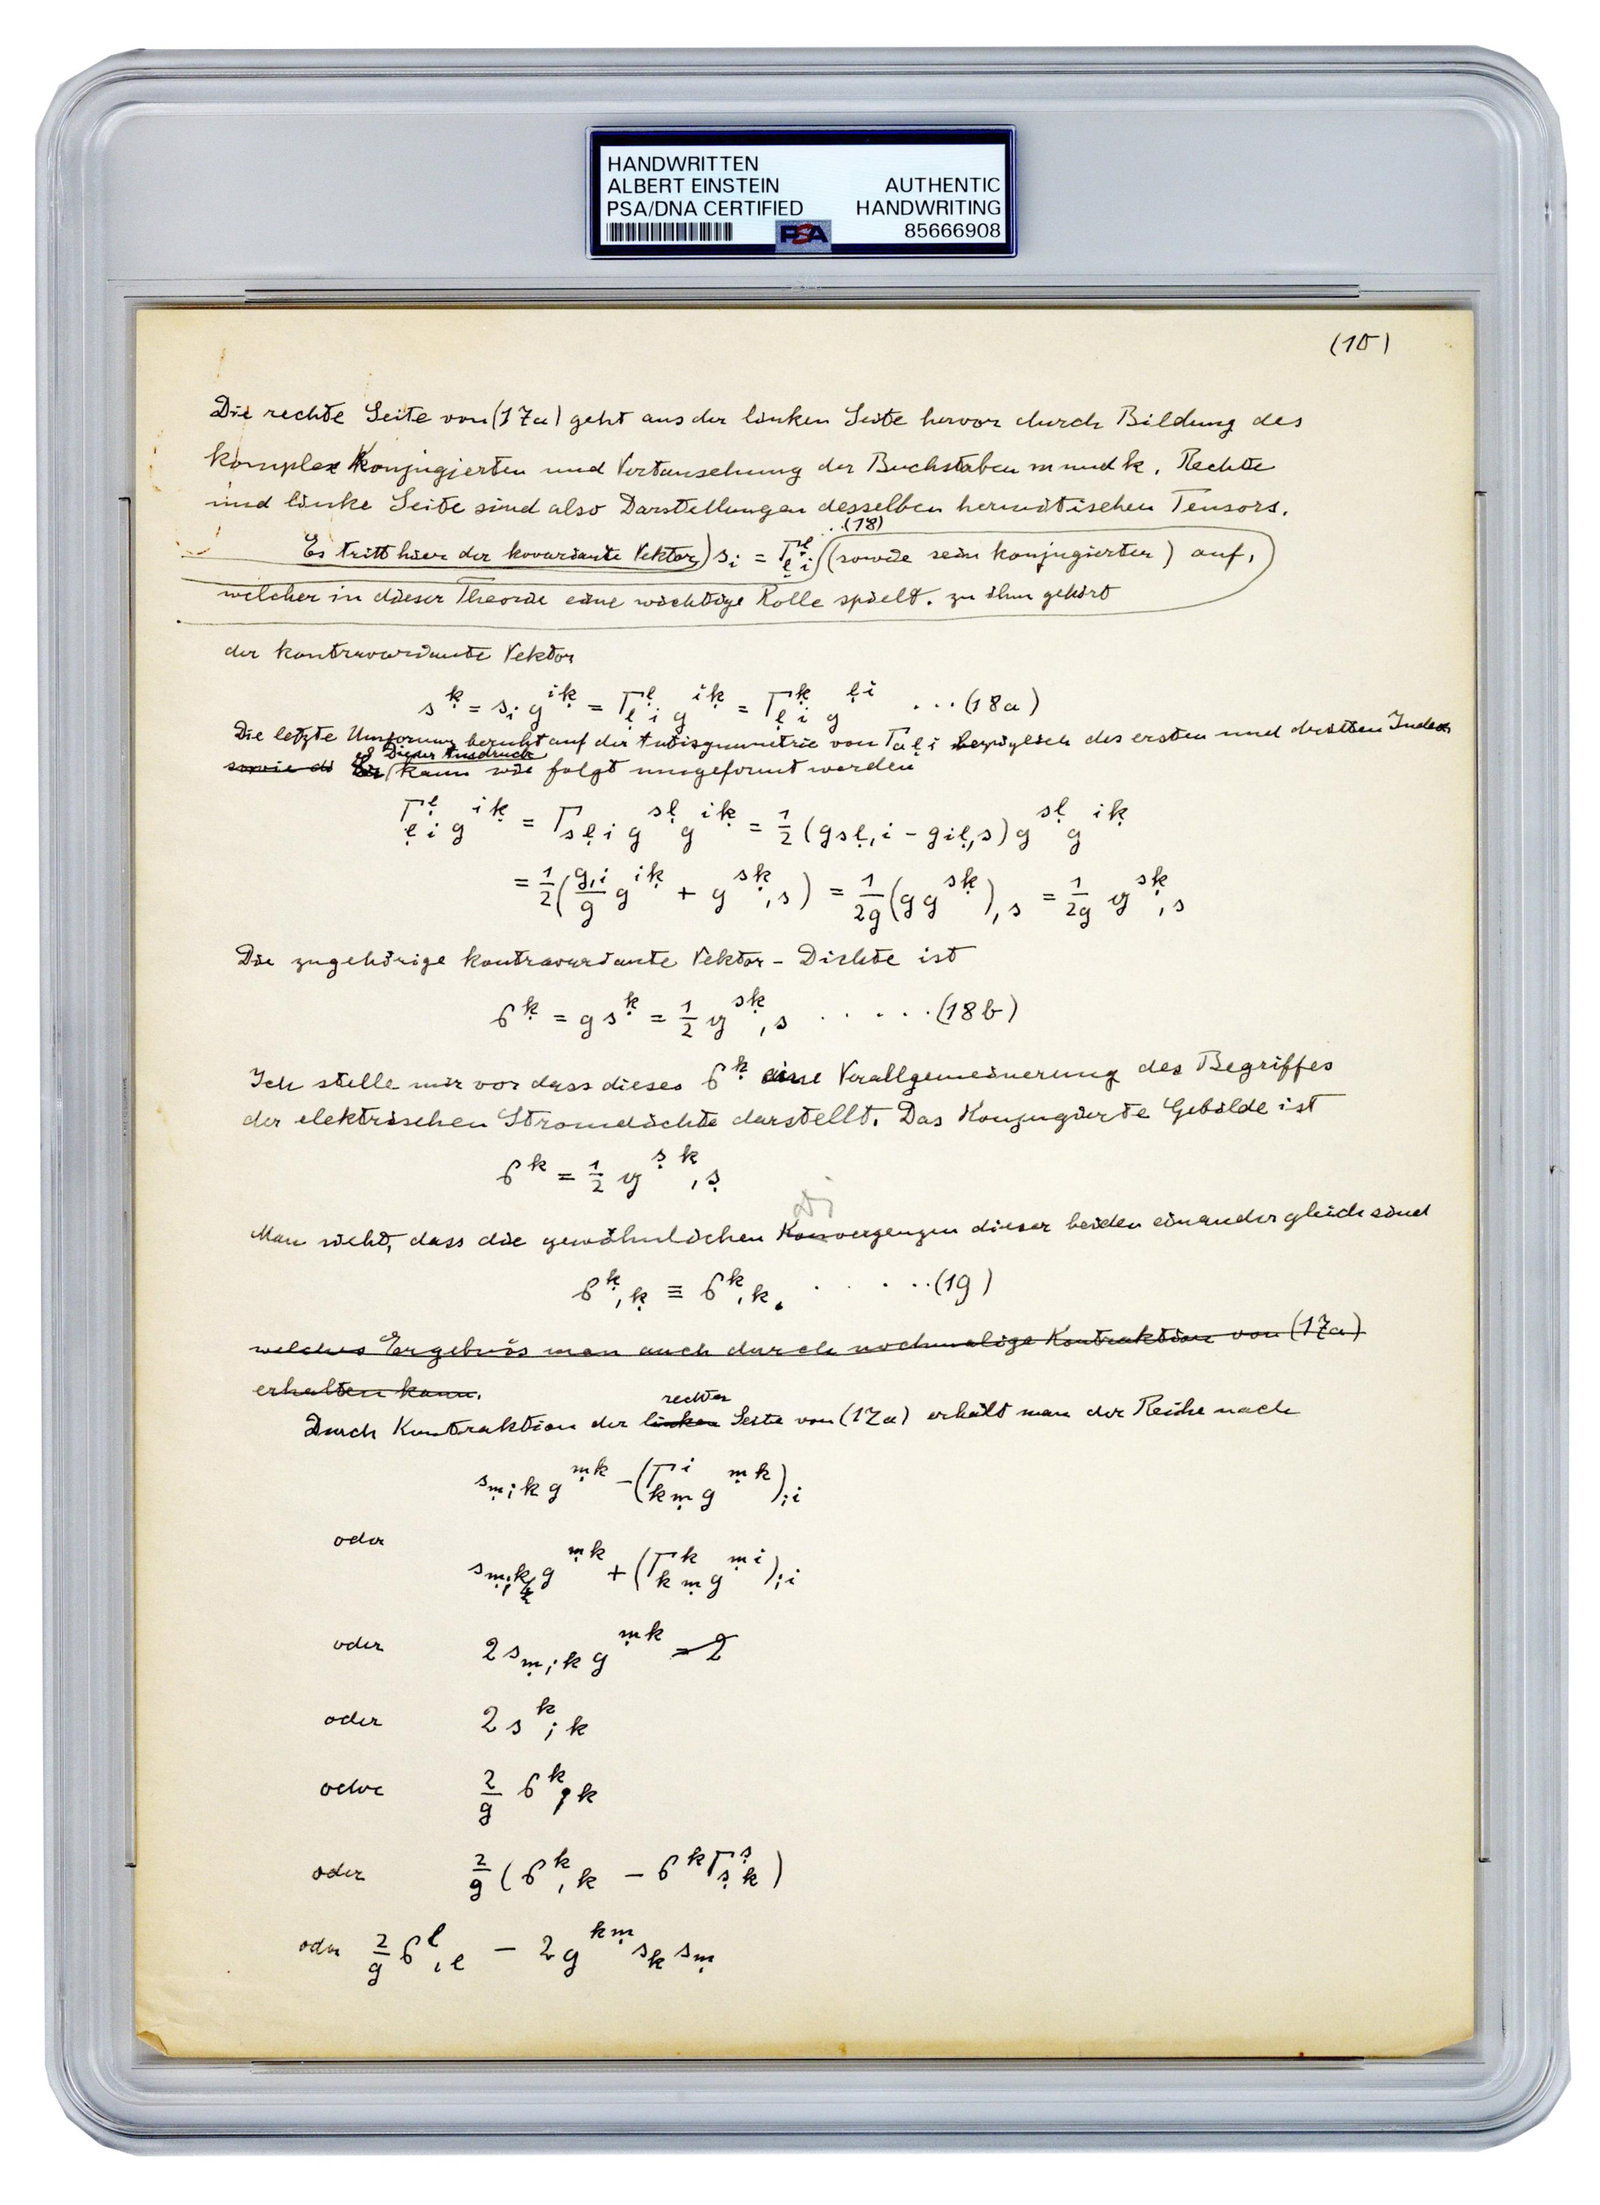 HANDWRITTEN
ALBERT EINSTEIN AUTHENTIC
PSA/DNA CERTIFIED HANDWRITING
PSA 85666908
(10)
Die rechte Seite von (17a) geht aus der linken Seite hervor durch Bildung des
komplex Konjugierten und Vertauschung der Buchstaben m und k. Rechte
und linke Seite sind also Darstellungen desselben hermitischen Tensors.
Es tritt hier der kovariante Vektor) sᵢ = Γ_ḷ^l_i (18) (sowie sein konjugierter) auf,
welcher in dieser Theorie eine wichtige Rolle spielt. zu ihm gehört
der kontravariante Vektor
s^ḳ = s_i g^{iḳ} = Γ_ḷ^l_i g^{iḳ} = Γ_ḷ^ḳ_i g^{ḷi} ...(18a)
Die letzte Umformung beruht auf der Antisymmetrie von Γ_{aḷi} bezüglich des ersten und dritten Index
sowie di Dieser Ausdruck kann wie folgt umgeformt werden
Γ_ḷ^l_i g^{iḳ} = Γ_{sḷi} g^{sḷ} g^{iḳ} = 1/2 (g_{sḷ,i} - g_{iḷ,s}) g^{sḷ} g^{iḳ}
= 1/2 (g,i/g g^{iḳ} + g^{sḳ},s) = 1/2g (g g^{sḳ}),s = 1/2g 𝔤^{sḳ},s
Die zugehörige kontravariante Vektor-Dichte ist
𝔰^ḳ = g s^ḳ = 1/2 𝔤^{sḳ},s .....(18b)
Ich stelle mir vor dass dieses 𝔰^ḳ eine Verallgemeinerung des Begriffes
der elektrischen Stromdichte darstellt. Das Konjugierte Gebilde ist
𝔰^k = 1/2 𝔤^{ṣk},ṣ
Di
Man sieht, dass die gewöhnlichen Konvergenzen dieser beiden einander gleich sind
𝔰^ḳ,ḳ ≡ 𝔰^k,k. .....(19)
welches Ergebnis man auch durch nochmalige Kontraktion von (17a)
erhalten kann.
rechten
Durch Kontraktion der linken Seite von (17a) erhält man der Reihe nach
s_{ṃ;k} g^{ṃk} - (Γ_k^i_ṃ g^{ṃk});i
oder s_{ṃ;k} g^{ṃk} + (Γ_k^k_ṃ g^{ṃi});i
oder 2 s_{ṃ;k} g^{ṃk} = 2
oder 2 s^k;k
oder 2/g 𝔰^k;k
oder 2/g (𝔰^k,k - 𝔰^k Γ_ṣ^ṣ_k)
oder 2/g 𝔰^l,l - 2g^{kṃ} s_k s_ṃ